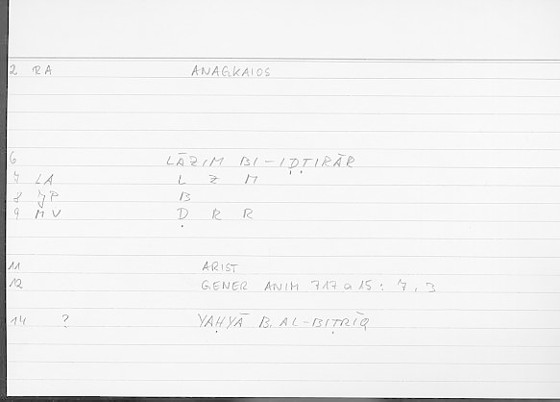 2 RA ANAGKAIOS
6 LĀZIM BI-IḌṬIRĀR
7 LA L Z M
8 JP B
9 MV Ḍ R R
11 ARIST
12 GENER ANIM 717 a 15 : 7, 3
14 ? YAḤYĀ B. AL-BIṬRĪQ